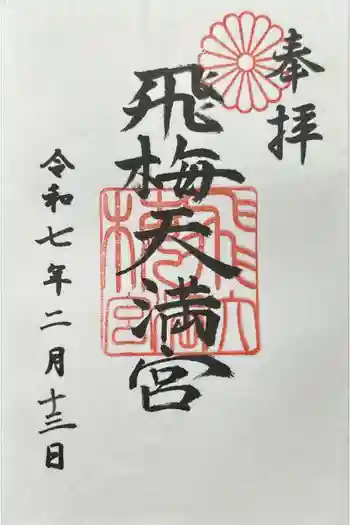 奉拝
飛梅天満宮
令和七年二月十三日